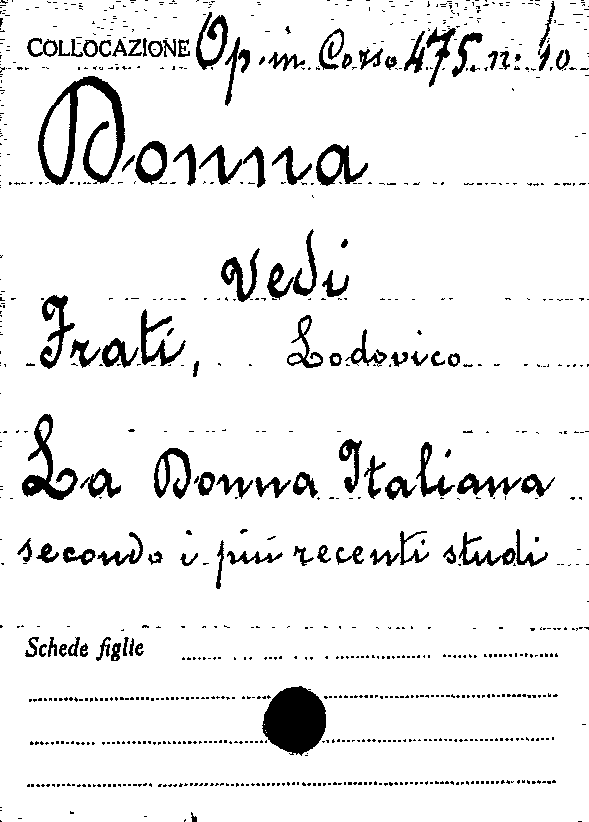 COLLOCAZIONE Op. in Corso 475. n: 10
Donna
vedi
Frati, Lodovico
La Donna Italiana
secondo i più recenti studi
Schede figlie